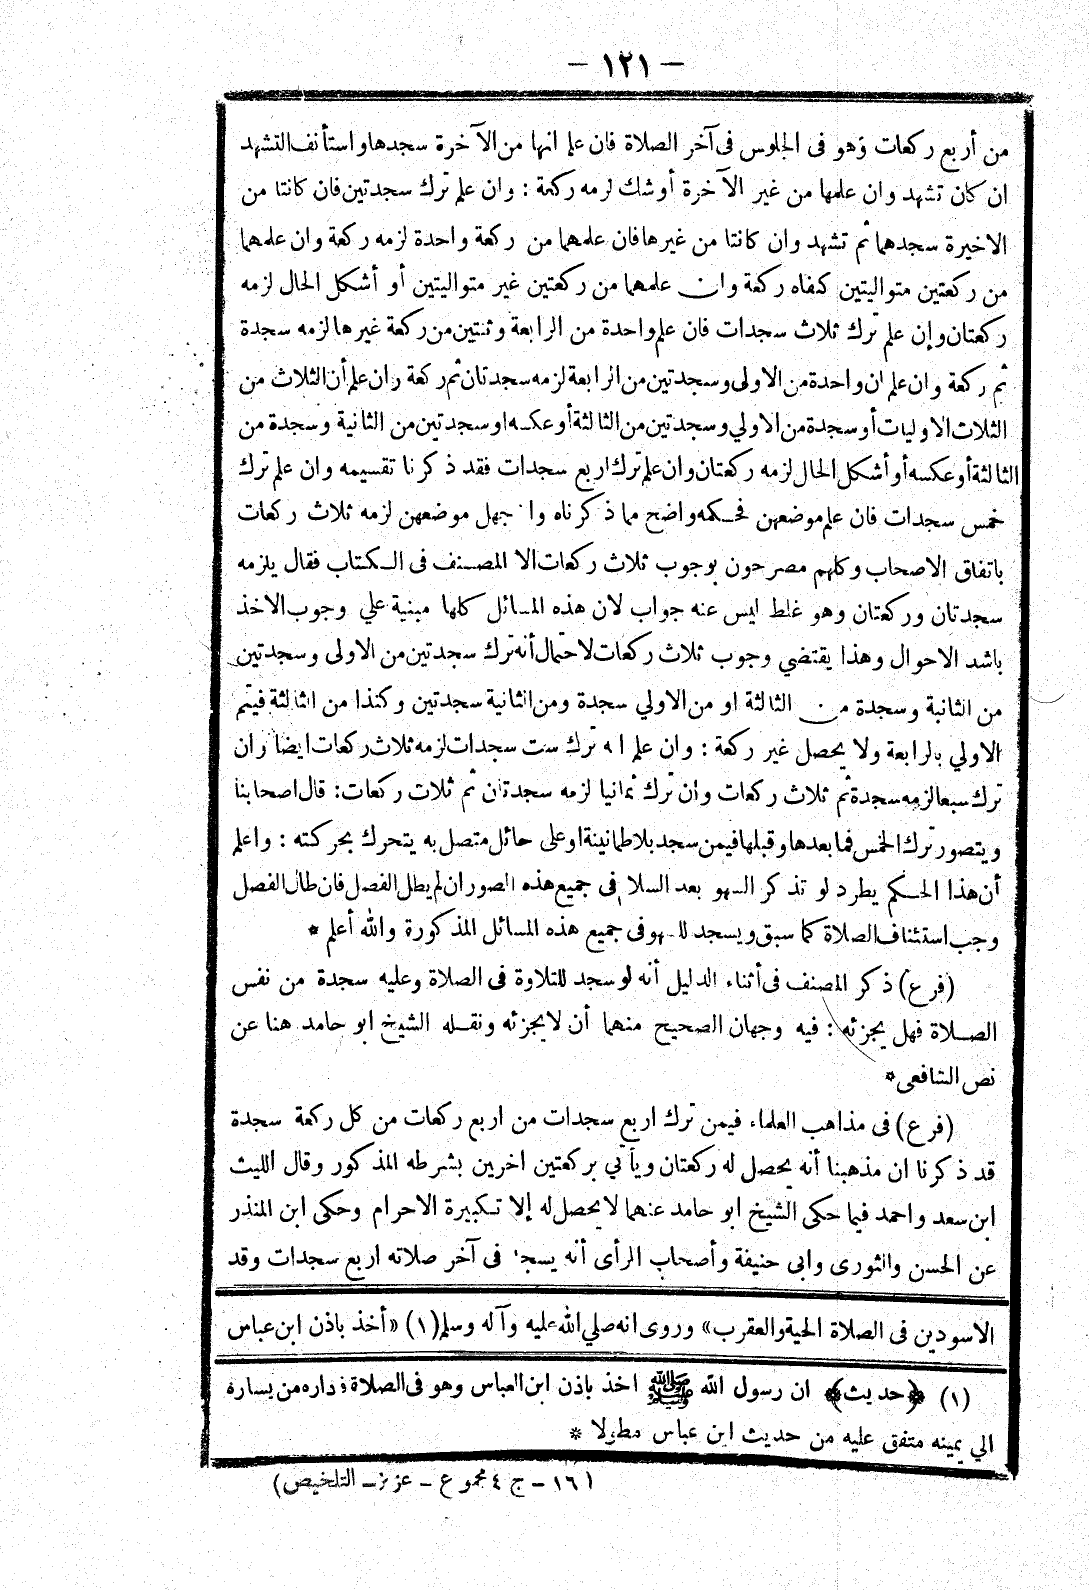 — ١٢١ —
من أربع ركعات وهو فى الجلوس فى آخر الصلاة فان علم انها من الآخرة سجدها واستأنف التشهد
ان كان تشهد وان علمها من غير الآخرة أوشك لزمه ركعة : وان علم ترك سجدتين فان كانتا من
الاخيرة سجدهما ثم تشهد وان كانتا من غيرها فان علمهما من ركعة واحدة لزمه ركعة وان علمهما
من ركعتين متواليتين كفاه ركعة وان علمهما من ركعتين غير متواليتين أو أشكل الحال لزمه
ركعتان وإن علم ترك ثلاث سجدات فان علم واحدة من الرابعة وثنتين من ركعة غيرها لزمه سجدة
ثم ركعة وان علم ان واحدة من الاولى وسجدتين من الرابعة لزمه سجدتان ثم ركعة وان علم أن الثلاث من
الثلاث الاوليات أو سجدة من الاولي وسجدتين من الثالثة أو عكسه او سجدتين من الثانية وسجدة من
الثالثة أو عكسه أو أشكل الحال لزمه ركعتان وان علم ترك اربع سجدات فقد ذكرنا تقسيمه وان علم ترك
خمس سجدات فان علم موضعهن فحكمه واضح مما ذكرناه وان جهل موضعهن لزمه ثلاث ركعات
باتفاق الاصحاب وكلهم مصرحون بوجوب ثلاث ركعات الا المصنف فى الكتاب فقال يلزمه
سجدتان وركعتان وهو غلط ليس عنه جواب لان هذه المسائل كلها مبنية علي وجوب الاخذ
باشد الاحوال وهذا يقتضي وجوب ثلاث ركعات لاحتمال أنه ترك سجدتين من الاولى وسجدتين
من الثانية وسجدة من الثالثة او من الاولي سجدة ومن الثانية سجدتين وكذا من الثالثة فيتم
الاولي بالرابعة ولا يحصل غير ركعة : وان علم انه ترك ست سجدات لزمه ثلاث ركعات ايضا وان
ترك سبعا لزمه سجدة ثم ثلاث ركعات وان ترك ثمانيا لزمه سجدتان ثم ثلاث ركعات : قال اصحابنا
ويتصور ترك الخمس فما بعدها وقبلها فيمن سجد بلا طمانينة او على حائل متصل به يتحرك بحركته : واعلم
أن هذا الحكم يطرد لو تذكر السهو بعد السلام فى جميع هذه الصور ان لم يطل الفصل فان طال الفصل
وجب استئناف الصلاة كما سبق ويسجد للسهو فى جميع هذه المسائل المذكورة والله أعلم *
(فرع) ذكر المصنف فى أثناء الدليل أنه لو سجد للتلاوة فى الصلاة وعليه سجدة من نفس
الصلاة فهل يجزئه : فيه وجهان الصحيح منهما أن لا يجزئه ونقله الشيخ ابو حامد هنا عن
نص الشافعى *
(فرع) فى مذاهب العلماء فيمن ترك اربع سجدات من اربع ركعات من كل ركعة سجدة
قد ذكرنا ان مذهبنا أنه يحصل له ركعتان ويأتي بركعتين اخرين بشرطه المذكور وقال الليث
ابن سعد واحمد فيما حكى الشيخ ابو حامد عنهما لا يحصل له إلا تكبيرة الاحرام وحكى ابن المنذر
عن الحسن والثورى وابى حنيفة وأصحاب الرأى أنه يسجد فى آخر صلاته اربع سجدات وقد
الاسودين فى الصلاة الحية والعقرب» وروى انه صلي الله عليه وآله وسلم (١) «أخذ باذن ابن عباس
(١) ﴿حديث﴾ ان رسول الله ﷺ اخذ باذن ابن العباس وهو فى الصلاة فداره من يساره
الي يمينه متفق عليه من حديث ابن عباس مطولا *
(١٦ – ج ٤ مجموع – عزيز – التلخيص)